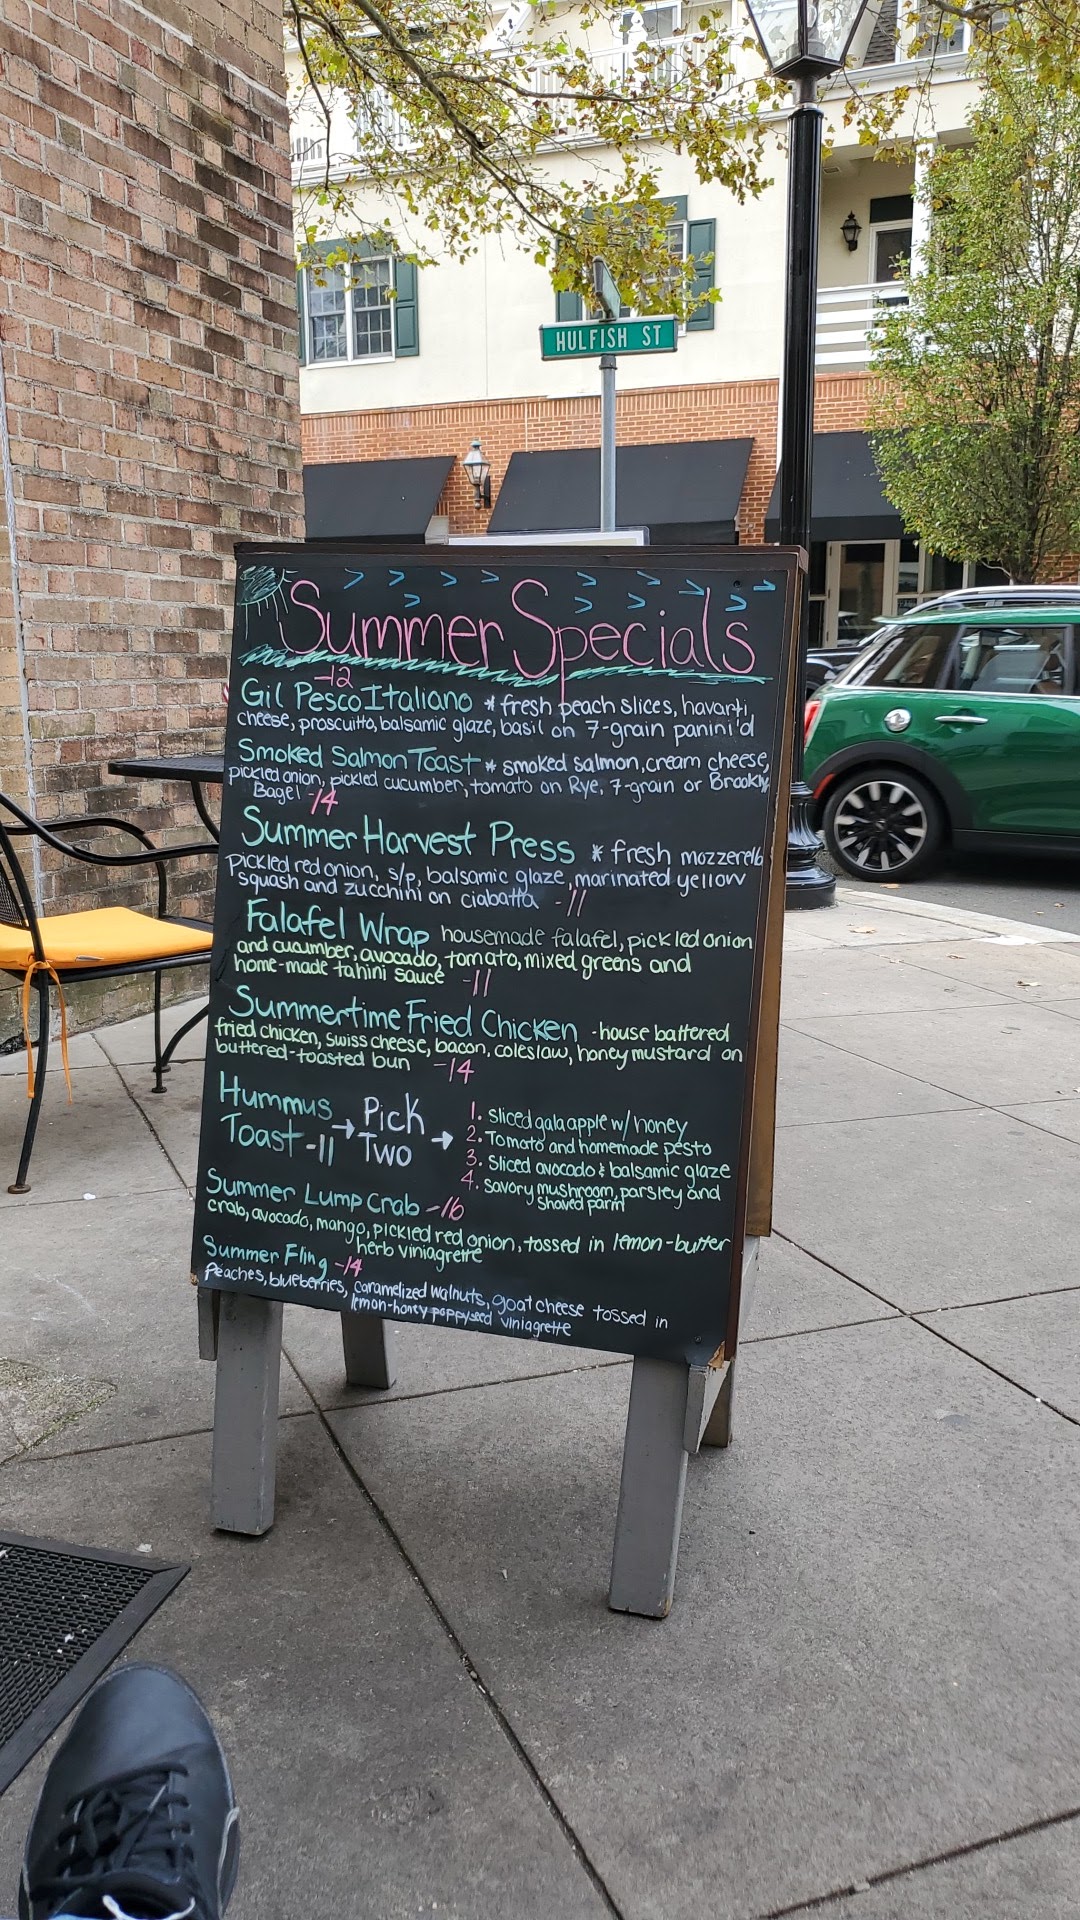 HULFISH ST
Summer Specials
-12
Gil Pesco Italiano * fresh peach slices, havarti,
cheese, proscuitto, balsamic glaze, basil on 7-grain panini'd
Smoked Salmon Toast * smoked salmon, cream cheese,
pickled onion, pickled cucumber, tomato on Rye, 7-grain or Brookly
Bagel -14
Summer Harvest Press * fresh mozzerella
pickled red onion, s/p, balsamic glaze, marinated yellow
squash and zucchini on ciabatta -11
Falafel Wrap housemade falafel, pickled onion
and cucumber, avocado, tomato, mixed greens and
home-made tahini sauce -11
Summertime Fried Chicken -house battered
fried chicken, swiss cheese, bacon, coleslaw, honey mustard on
buttered-toasted bun -14
Hummus Toast -11 → Pick Two →
1. Sliced gala apple w/ honey
2. Tomato and homemade pesto
3. Sliced avocado & balsamic glaze
4. Savory mushroom, parsley and
shaved parm
Summer Lump Crab -16
crab, avocado, mango, pickled red onion, tossed in lemon-butter
herb viniagrette
Summer Fling -14
Peaches, blueberries, caramelized walnuts, goat cheese tossed in
lemon-honey poppyseed viniagrette